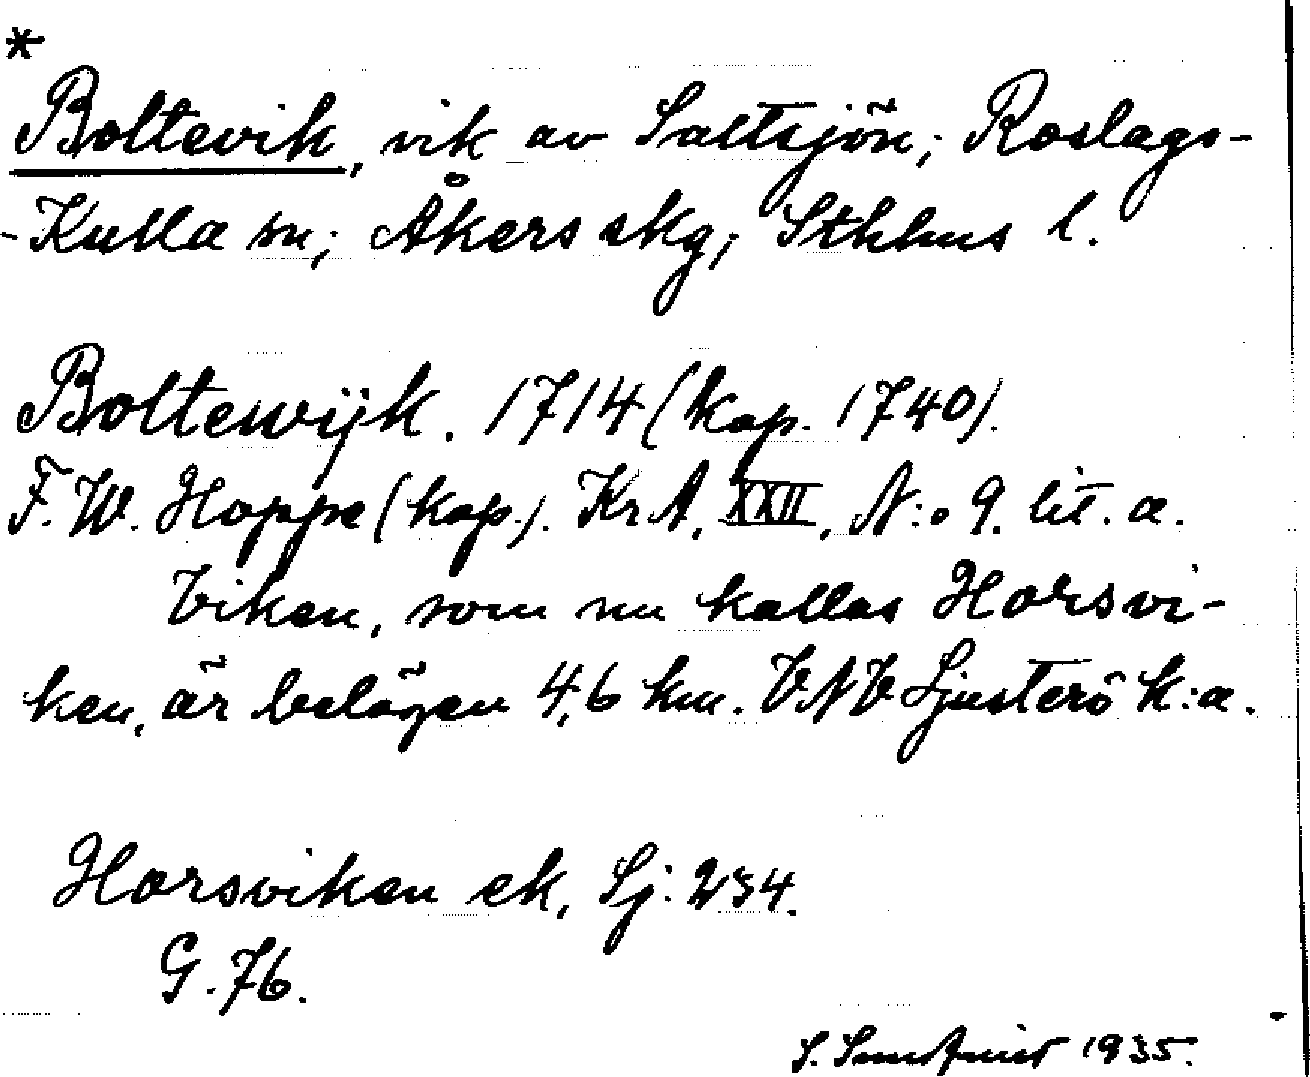 *
Boltevik, vik av Saltsjön; Roslags-
-Kulla sn; Åkers skg; Sthlms l.
Boltewijk. 1714 (kop. 1740).
F. W. Hoppe (kop.). Kr.A, XXII, N:o 9. lit. a.
Viken, som nu kallas Horsvi-
ken, är belägen 4,6 km. VNV Ljusterö k:a.
Horsviken ek, Sj: 234.
G. 76.
S. 1935.